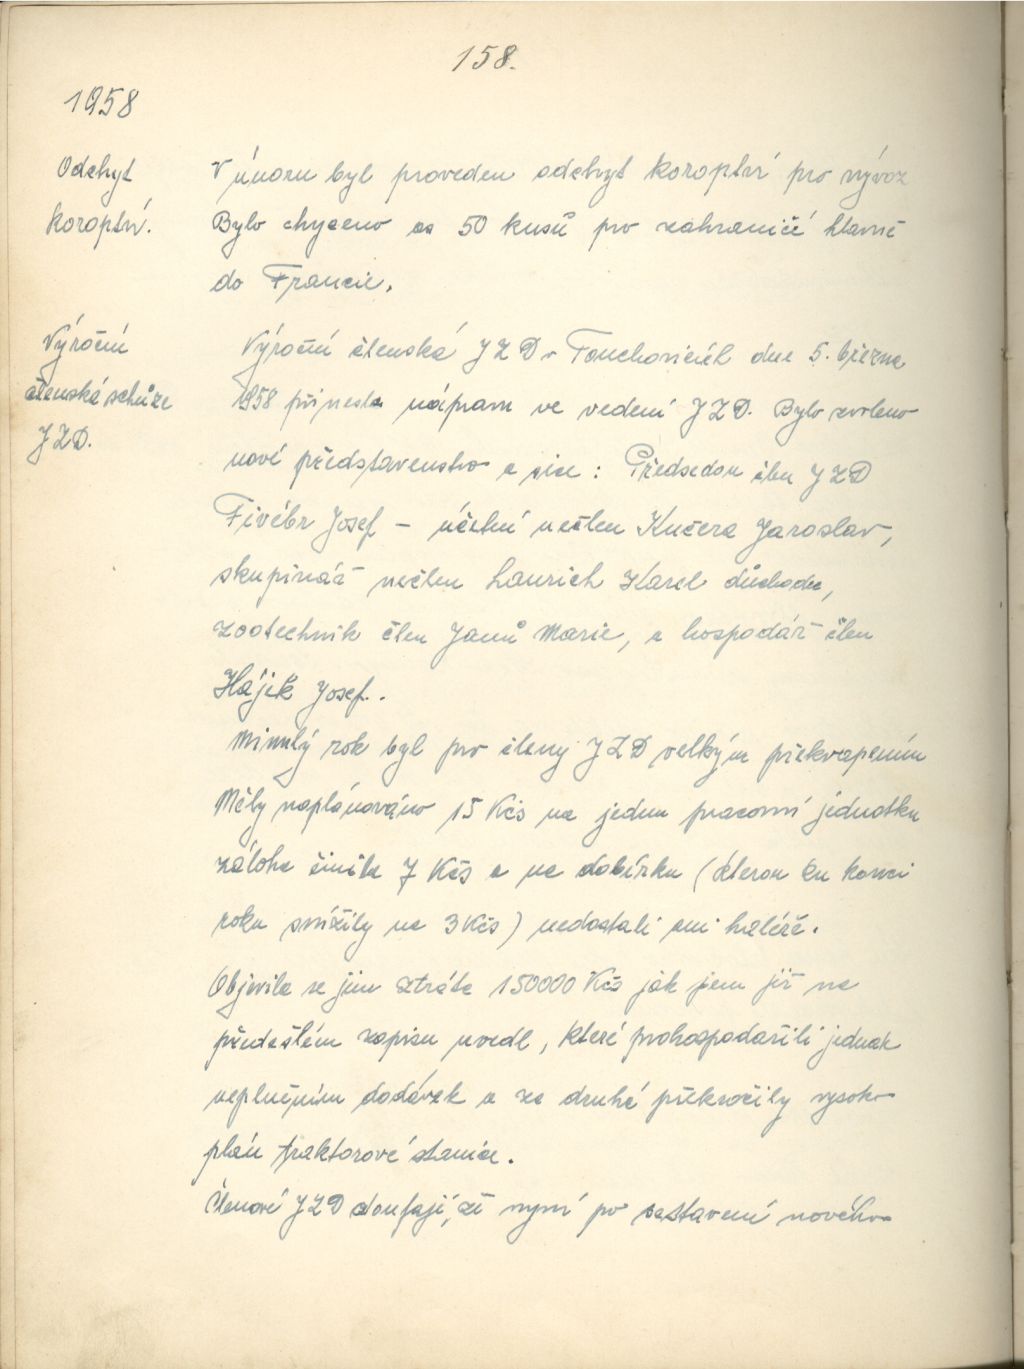 158.
1958
Odchyt
koroptví.
V únoru byl proveden odchyt koroptví pro vývoz
Bylo chyceno as 50 kusů pro zahraničí hlavně
do Francie.
Výroční
členská schůze
JZD.
Výroční členská JZD v Touchovicích dne 5. března
1958 přinesla nápravu ve vedení JZD. Bylo zvoleno
nové představenstvo a sice: Předsedou člen JZD
Fivébr Josef - účetní nečlen Kučera Jaroslav,
skupinář nečlen Laurich Karel důchodce,
zootechnik člen Janů Marie, a hospodář člen
Hájek Josef.
Minulý rok byl pro členy JZD velkým překvapením
Měly naplánováno 15 Kčs na jednu pracovní jednotku
záloha činila 7 Kčs a na dobírku (kterou ku konci
roku snížily na 3 Kčs) nedostali ani haléře.
Objevila se jim ztráta 150000 Kčs jak jsem již na
předešlém zapisu uvedl, které prohospodařili jednak
neplněním dodávek a za druhé překročily vysoko
plán traktorové stanice.
Členové JZD doufají, že nyní po sestavení nového